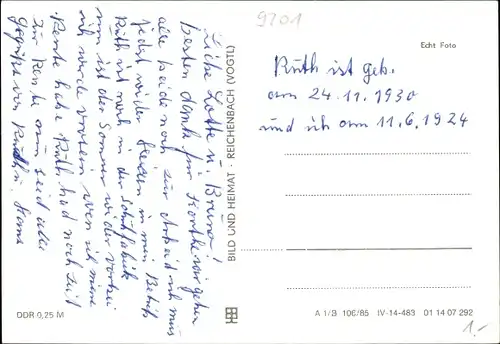 9201
Echt Foto
Liebe Lotte u. Bruno!
besten dank für Karte wir gehen
alle beide noch zur Arbeit ich mus
jeden wider in mein Betrib
Ruth ist noch in der Schuhfabrik
nun ist der Sommer wider vorbei
ich werde wen ich meine
Rente habe Ruth had noch Zeit
Zur Rente nun seid alle
gegrüßt von Ruth u. Hans
BILD UND HEIMAT · REICHENBACH (VOGTL)
Ruth ist geb.
am 24.11.1930
und ich am 11.6.1924
DDR 0,25 M
A 1/B 106/85 IV-14-483 01 14 07 292
1.-